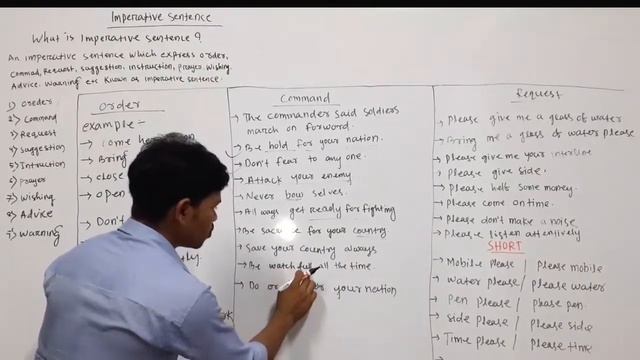 Imperative Sentence
What is Imperative sentence?
An imperative sentence which express order,
Commad, Request, suggestion, instruction, prayer, wishing.
Advice. Warning etc known as imperative sentence.
1) oreder
2) Command
3) Request
4) Suggestion
5) Intruction
6) Prayer
7) Wishing
8) Advice
9) Warning
order
example:-
→ come
→ Bring
→ close
→ open
→ Don't
Command
→ The commanders said soldiers
march on forward.
→ Be hold for your nation.
→ Don't fear to any one.
→ Attack your enemy
→ Never bow selves.
→ All ways get ready for fighting
→ Be for your country.
→ Save your country always
→ Be watchfull all the time.
→ Do or your nation
Request
→ please give me a glass of water
→ Bring me a glass of water please
→ please give me your
→ please give side.
→ please help some money.
→ please come on time.
→ please don't make a noise
→ Please listen attentively
SHORT
→ Mobile please / please mobile
→ water please / please water
→ pen please / phase pen
→ side please / please side
→ Time please / please time